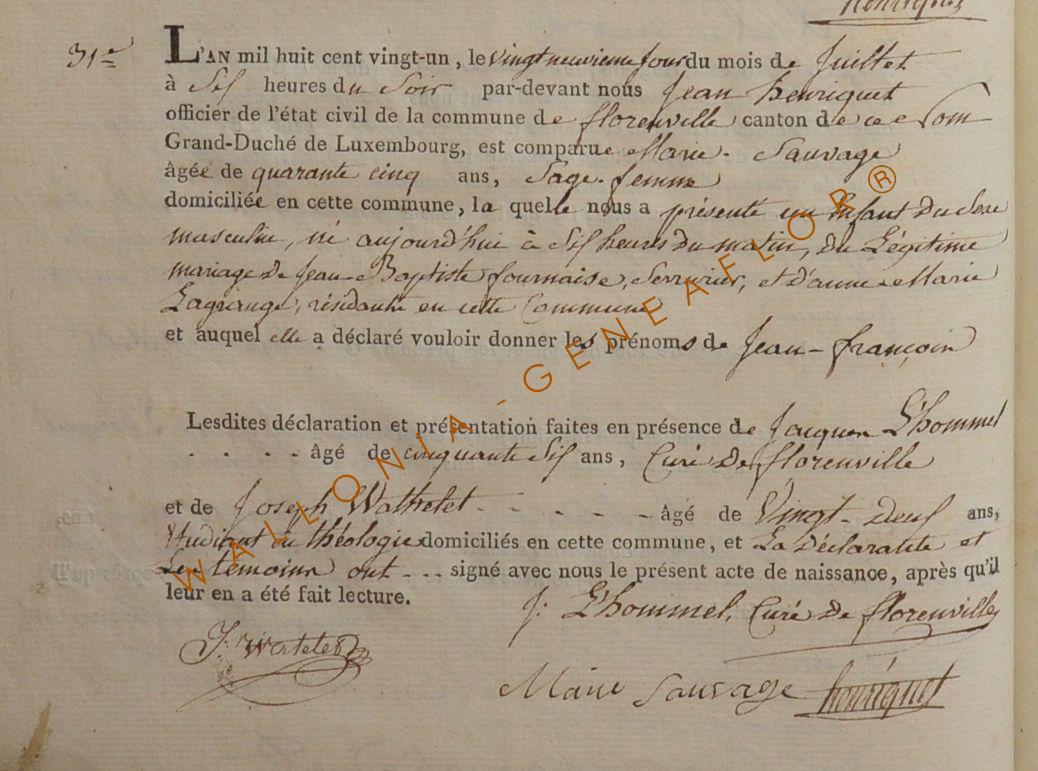 henriquet
31e
L'AN mil huit cent vingt-un, le vingt neuvieme jour du mois de Juillet
à Six heures du Soir par-devant nous Jean henriquet
officier de l'état civil de la commune de florenville canton de ce Nom
Grand-Duché de Luxembourg, est comparue Marie Sauvage
âgée de quarante cinq ans, Sage-femme
domiciliée en cette commune, la quelle nous a présenté un Enfant du Sexe
masculin, né aujourd'hui à Six heures du matin, du Légitime
mariage de Jean-Baptiste fournaise, Serrurier, et d'anne-Marie
Lagrange, résidante en cette Commune
et auquel elle a déclaré vouloir donner les prénoms de Jean-françois
Lesdites déclaration et présentation faites en présence de Jacques L'hommel
âgé de cinquante Six ans, Curé de florenville
et de Joseph Wathelet - - - - - âgé de Vingt-deux ans,
Etudiant en théologie domiciliés en cette commune, et La Déclarante et
Les témoins ont - - - signé avec nous le présent acte de naissance, après qu'il
leur en a été fait lecture.
J: L'hommel, Curé de florenville
J: Watelet
Marie Sauvage henriquet
WALLONIA-GENEAFLOR®